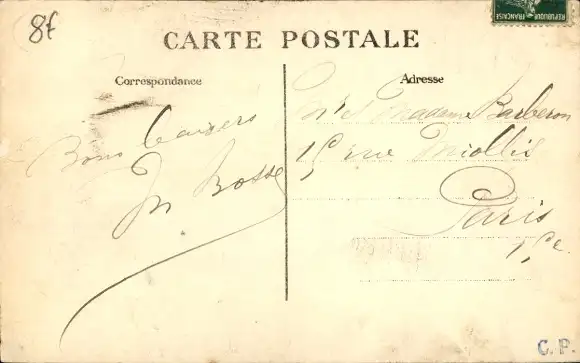 8f
RÉPUBLIQUE FRANÇAISE
CARTE POSTALE
Correspondance
Adresse
Bons baisers
M Bosse
Mr & Madame Barberon
15 rue Miollis
Paris
15e
C. P.